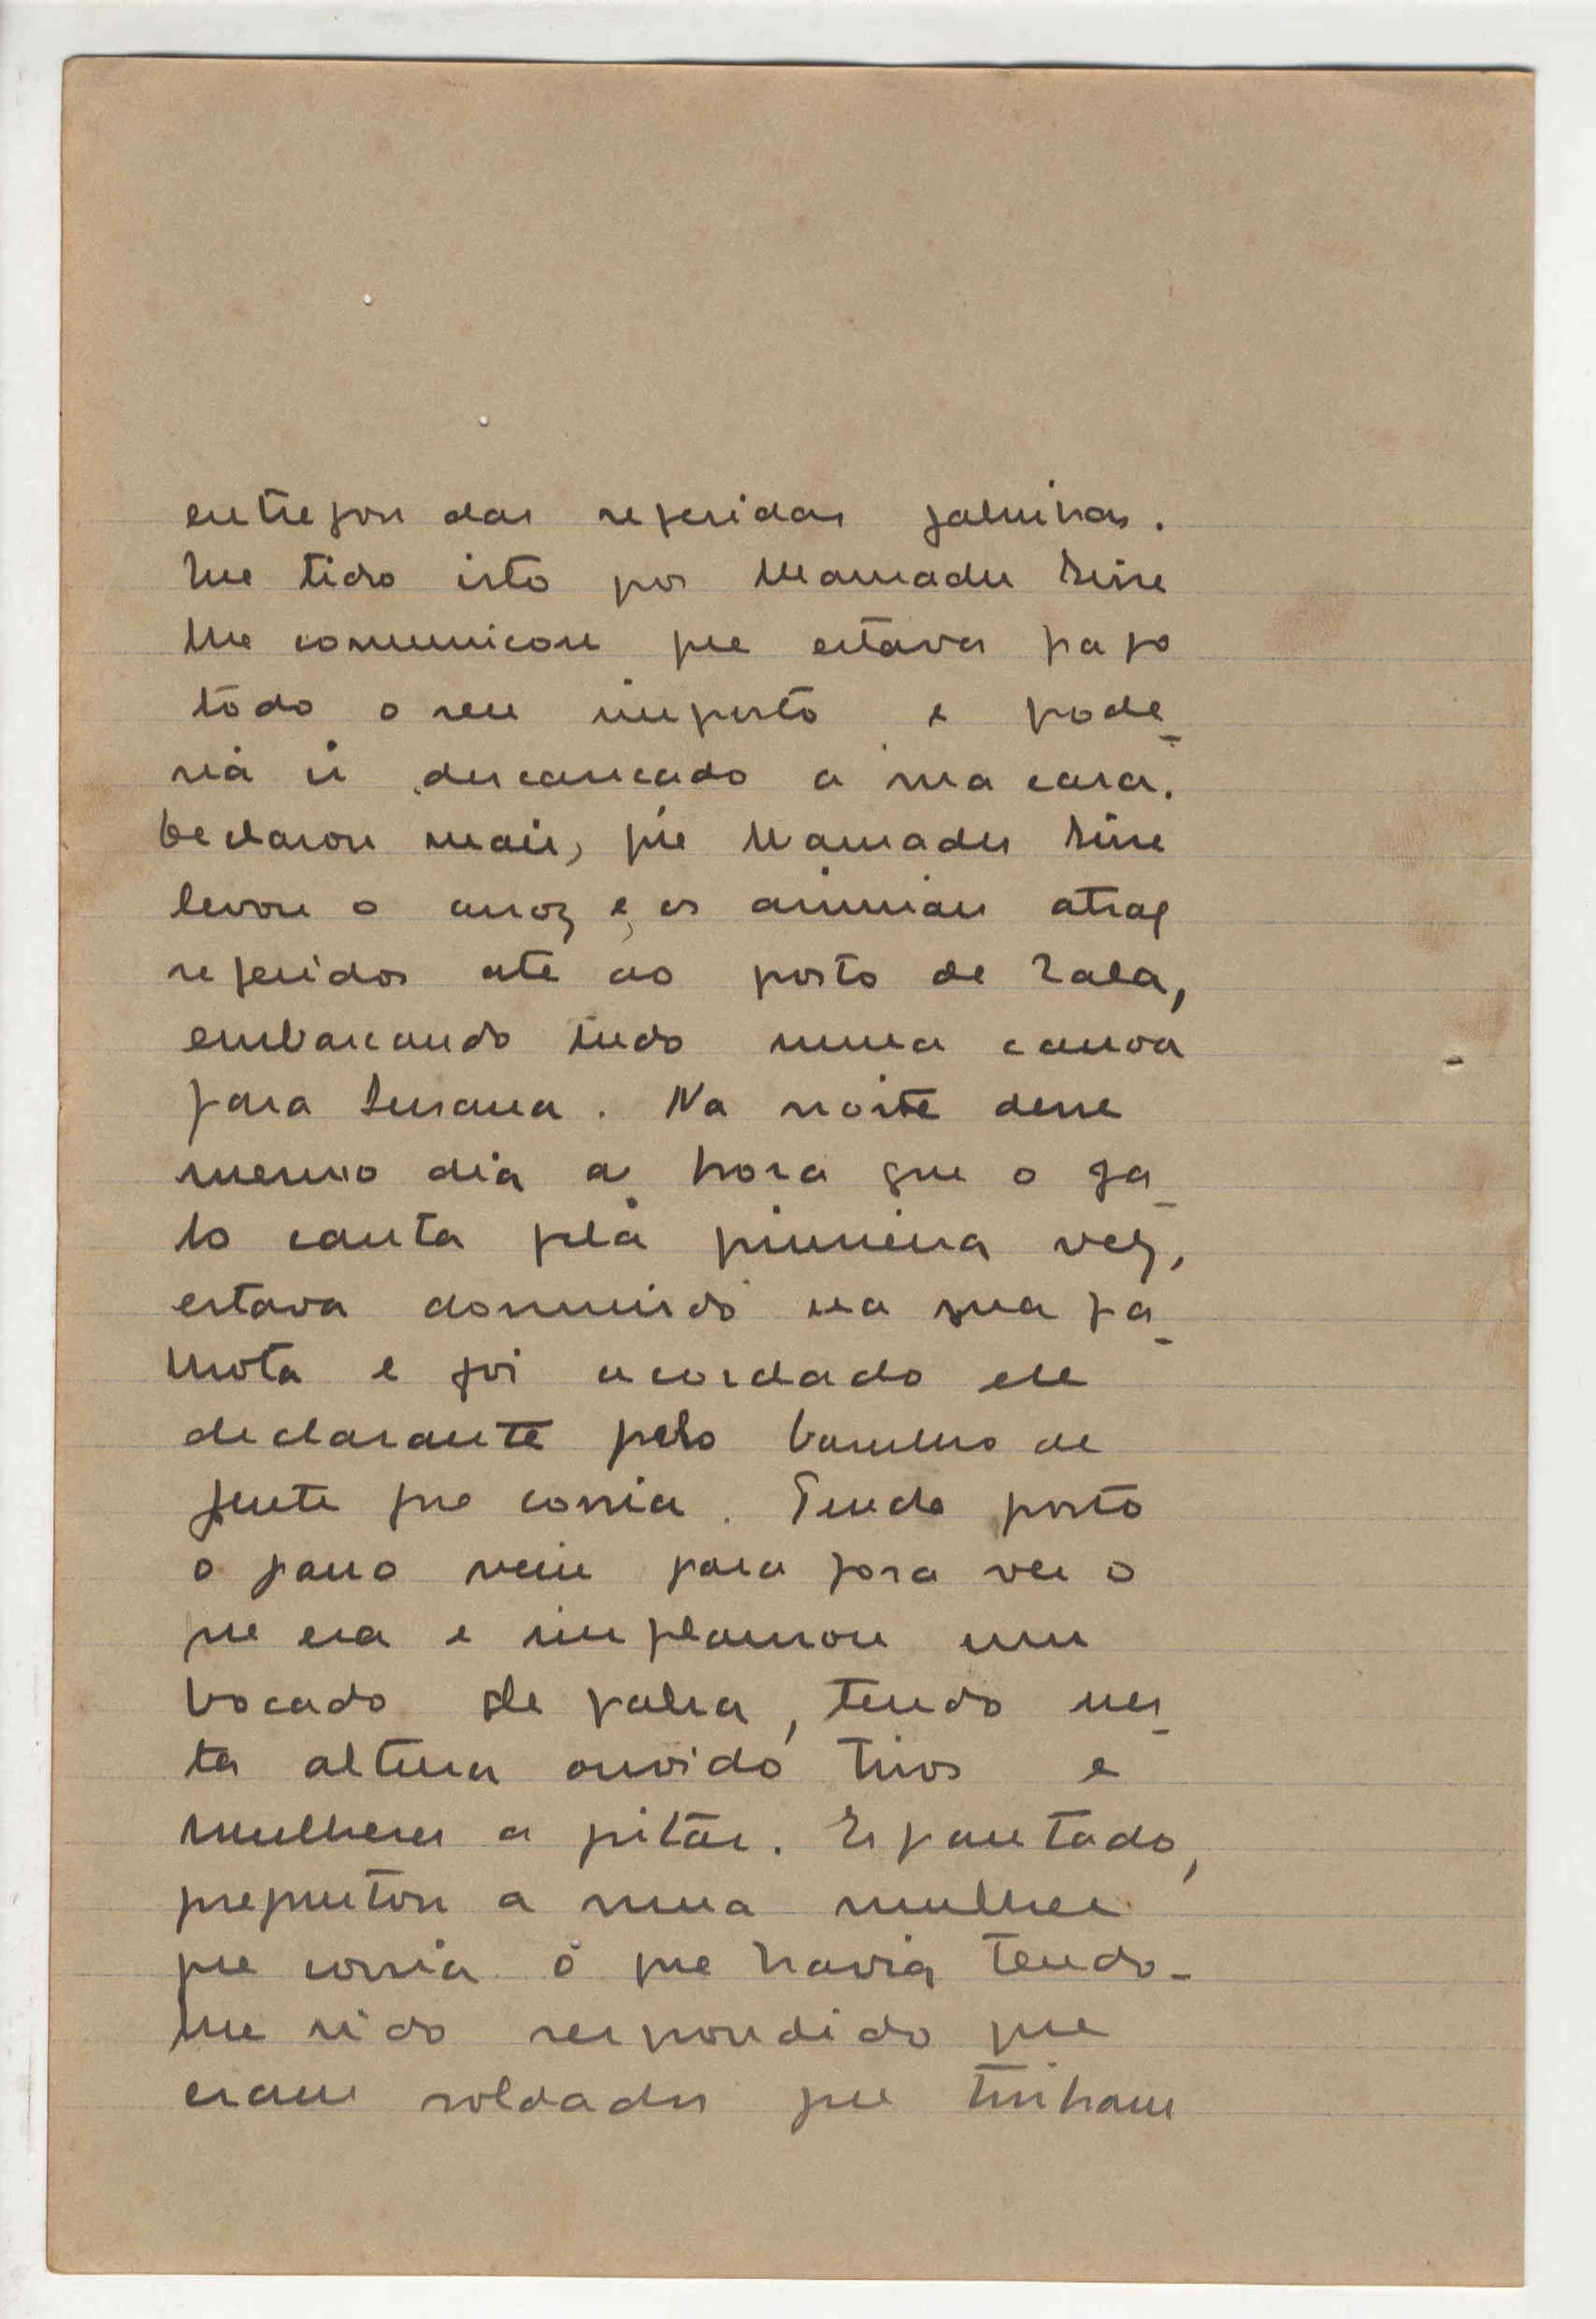 entregou das referidas galinhas.
lhe tido isto por Mamadu Sisse
lhe comunicou que estava pago
todo o seu imposto e pode-
ria ir descancado a sua casa.
Declarou mais, que Mamadu Sisse
levou o arroz e os animais atraz
referidos até ao porto de Lala,
embarcando tudo numa canoa
para Susana. Na noite desse
mesmo dia a hora que o ga-
lo canta pela primeira vez,
estava dormindo na sua pa-
lhota e foi acordado ele
declarante pelo barulho de
gente que corria. Tendo posto
o pano veiu para fora ver o
que era e inflamou um
bocado de palha, tendo nes-
ta altura ouvido tiros e
mulheres a gritar. Espantado,
preguntou a uma mulher
que corria o que havia tendo-
lhe sido respondido que
eram soldados que tinham